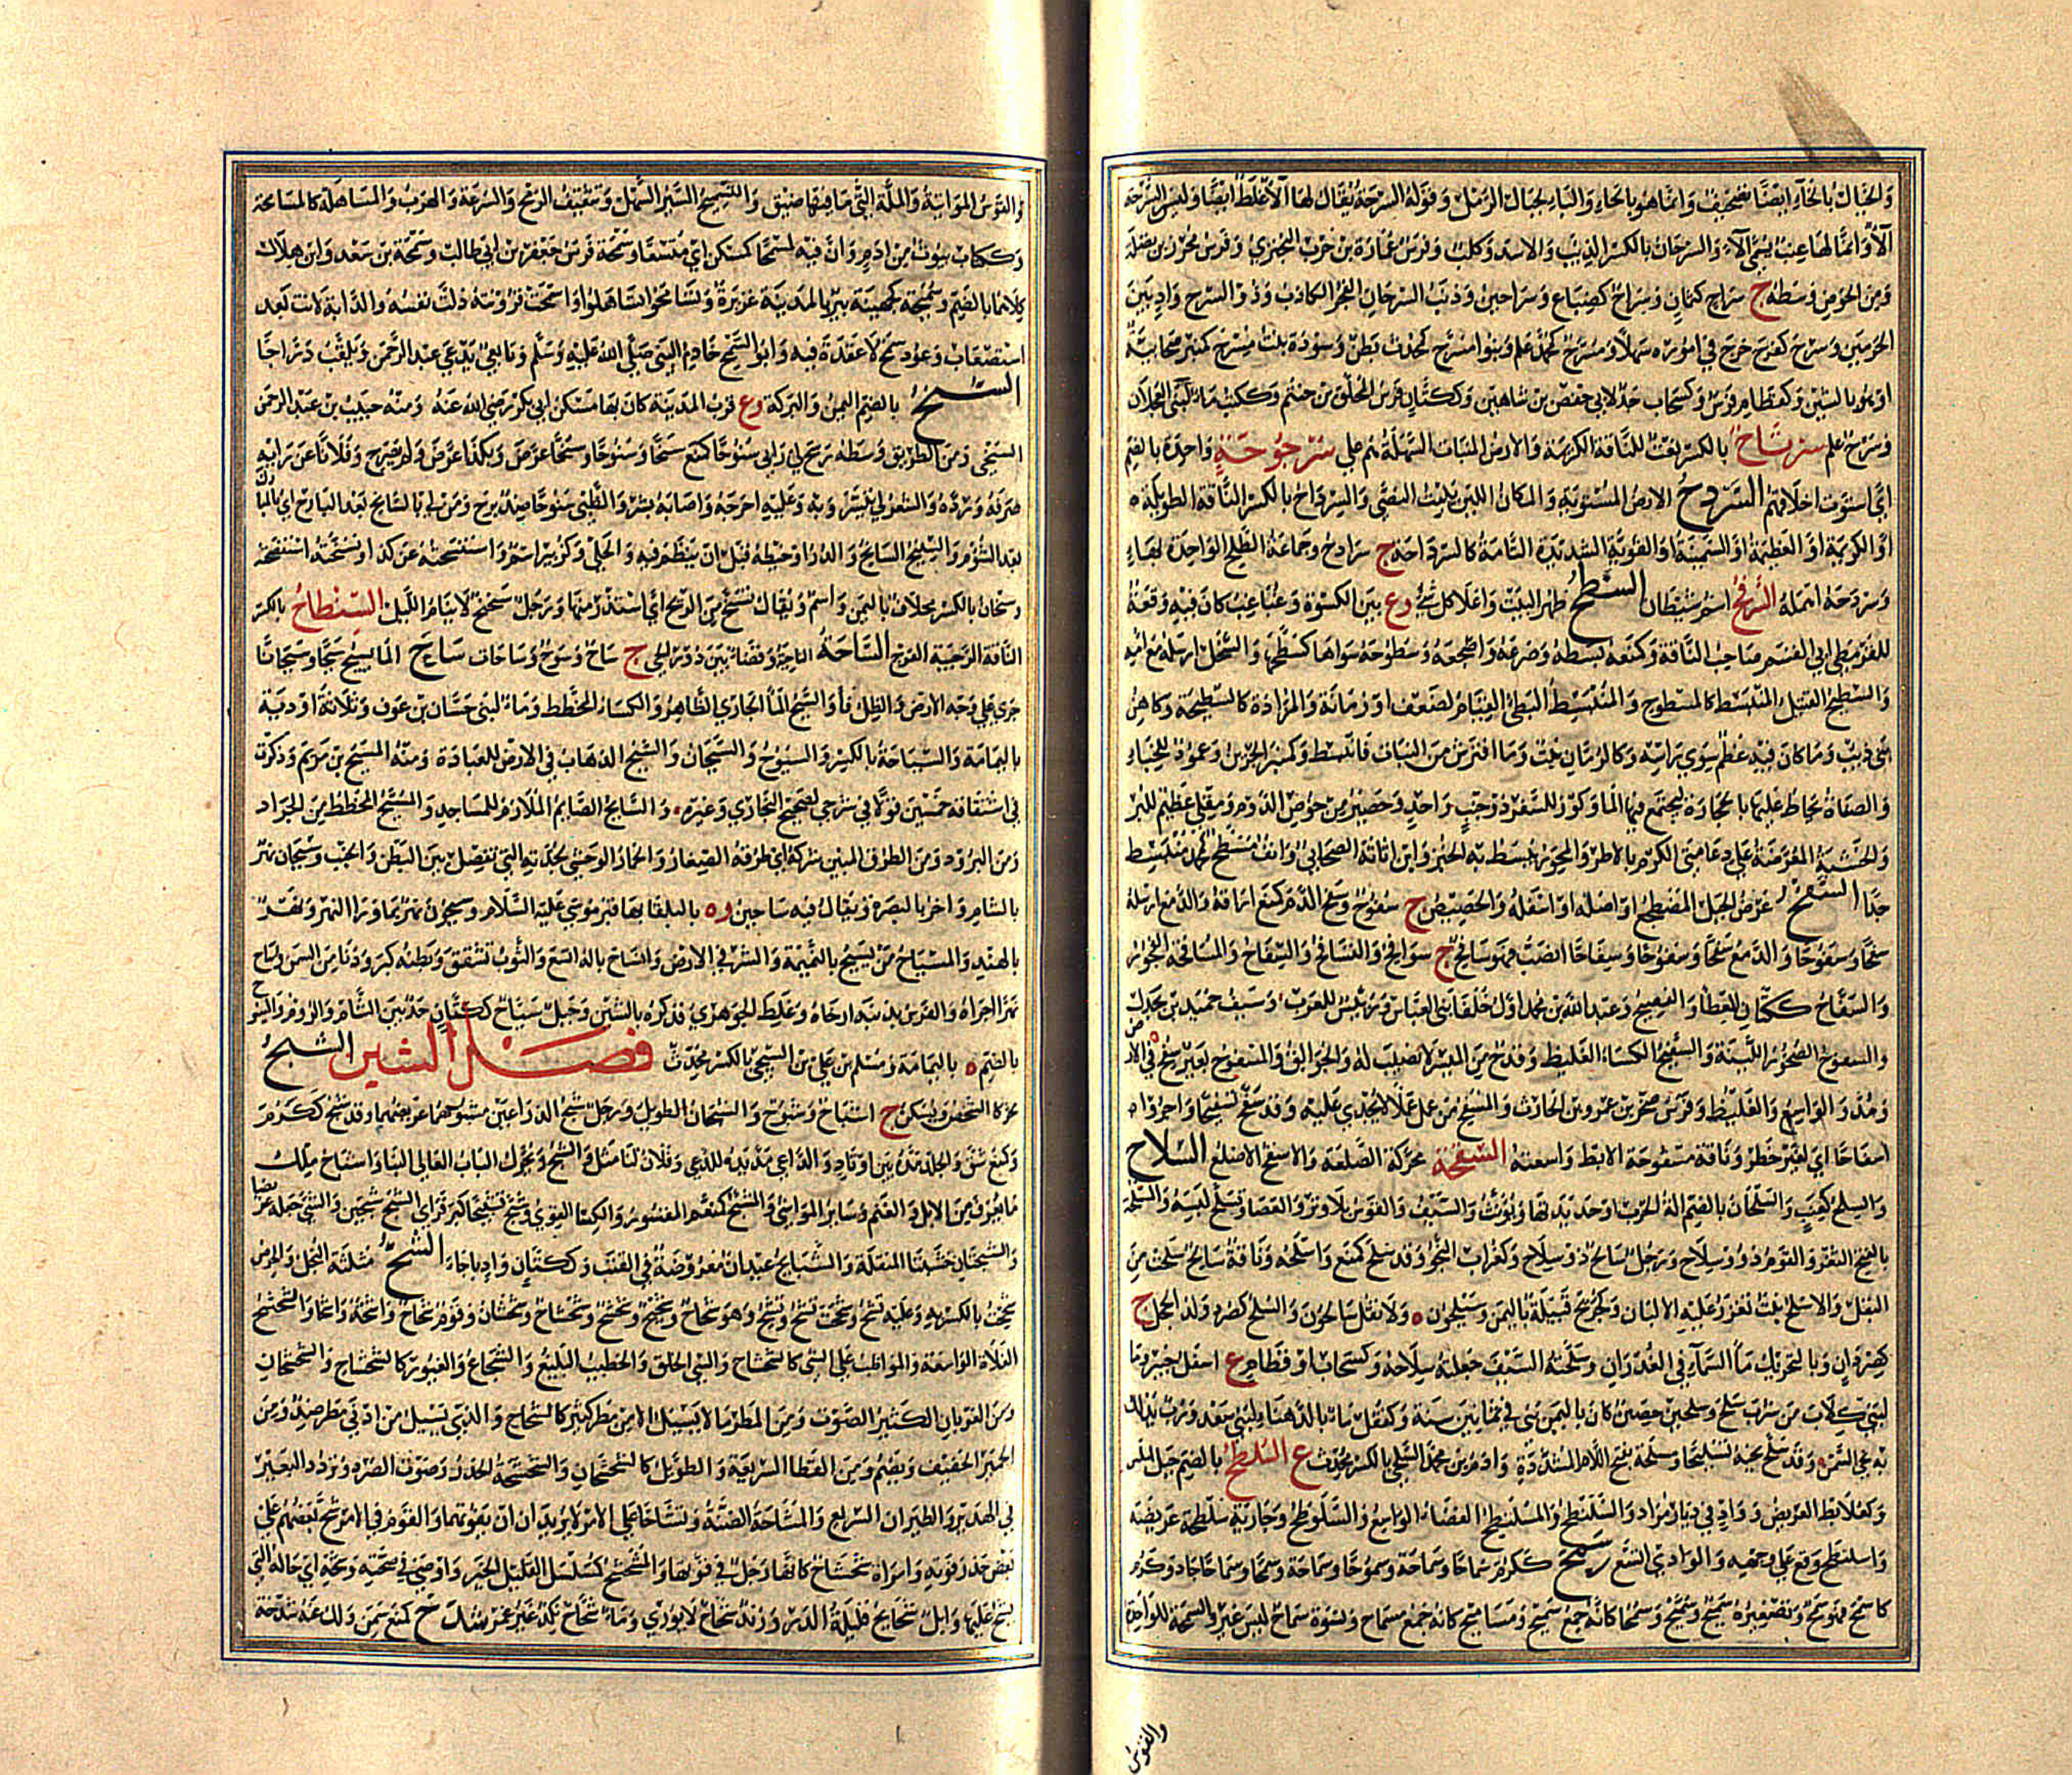 والخبال بالخآء ايضا تصحيف وانما هو بالحاء والباء لجبال الرمل وقوله السرحة يقال لها الآء غلط ايضا وليس السرحة
الآء وانما لها عنب يسمى الآء والسرحان بالكسر الذيب والاسد وكلب وفرس عمارة بن حرب البحتري وفرس محرز بن نضلة
ومن الحوض وسطه ج سراح كثمان وسراح كضباع وسراحين وذنب السرحان الفجر الكاذب وذو السرح واد بين
الحرمين وسرح كفرح خرج في اموره سهلا ومسرح كمحمد علم وبنو مسرح كمحدث بطن وسودة بنت مسرح كمنبر صحابية
او هو بالشين وكقطام فرس وكسحاب جد لابي حفص بن شاهين وككتان فرس المحلق بن حنتم وككتب ماء لبني العجلان
وسرح علم سرتاح بالكسر نعت للناقة الكريمة والارض المنبات السهلة هم على سرجوحة واحدة بالضم
اي استوت اخلاقهم السردح الارض المستوية والمكان اللين ينبت النصي والسرداح بالكسر الناقة الطويلة
او الكريمة او العظيمة او السمينة او القوية الشديدة التامة كالسرداحة ج سرادح وجماعة الطلح الواحدة بهاء
وسردحه اهمله السرفح اسم شيطان السطح ظهر البيت واعلا كل شي وع بين الكسوة وغباغب كان فيه وقعة
للقرمطي ابي القسم صاحب الناقة وكمنعه بسطه وصرعه واضجعه وسطوحه سواها كسطحها والسخل ارسله مع امه
والسطيح القتيل المنبسط كالمسطوح والمنبسط البطئ القيام لضعف او زمانة والمزادة كالسطيحة وكاهن
بني ذيب وما كان فيه عظم سوى راسه وكالرمان نبت وما افترش من النبات فانبسط وكمنبر الجرين وعمود للخباء
والصفاة يحاط عليها بالحجارة ليجتمع فيها الماء وكوز للسفر ذو جنب واحد وحصير من خوص الدوم ومقلى عظيم للبر
والخشبة المعرضة على دعامتى الكرم بالاطر والمحور يبسط به الخبز وابن اثاثة الصحابي وانف مسطح كمحمد منبسط
جدا السفح عرض الجبل المضطجع او اصله او اسفله والحضيض ج سفوح وسفح الدم كمنع اراقه والدمع ارسله
سفحا وسفوحا والدمع سفحا وسفوحا وسفاحا انصب فهو سافح ج سوافح والتسافح والسفاح والمسافحة الفجور
والسفاح ككتان المعطا والفصيح وعبد الله بن محمد اول خلفا بني العباس ورئيس للعرب وسيف حميد بن بحدل
والسفوح الصخور اللينة والسفيح الكساء الغليظ وقدح من الميسر لا نصيب له والجوالق والمسفوح بعير سفح في الارض
ومد والواسع والغليظ وفرس صخر بن عمرو بن الحارث والمسفح من عمل عملا لا يجدي عليه وقد سفح تسفيحا واجروا
اسفاحا اي لغير خطر وناقة مسفوحة الابط واسعته السقحة محركة الصلعة والاسقح الاصلع السلاح
والسلح كعنب والسلحان بالضم الة الحرب او حديدتها ويؤنث والسيف والقوس بلا وتر والعصا وتسلح لبسه والمسلحة
بالفتح الثغر والقوم ذوو سلاح ورجل سالح ذو سلاح وكغراب النجو وقد سلح كمنع واسلحه وناقة سالح سلحت من
البقل والاسليح نبت تغزر عليه الالبان وكجريح قبيلة باليمن وسيلحون ه ولا تقل سالحون والسلح كصرد ولد الحجل ج
كصردان وبالتحريك ماء السمآء في الغدران وسلحته السيف جعلته سلاحه وكسحاب او قطام ع اسفل خيبر وما
لبني كلاب من شرب سلح وسلحين حصين كان باليمن بني في ثمانين سنة وكقفل ماء بالدهناء لبني سعد ورب يدلك
به نحي السمن وقد سلح نحيه تسليحا ومسلحة بفتح اللام المشددة ع وادم بن محمد السلحي بالكسر محدث السلطح بالضم جبل املس
وكعلابط العريض وواد في ديار مراد والسلنطح والمسلنطح الفضاء الواسع والسلوطح ع وجارية سلطحة عريضة
واسلنطح وقع على وجهه والوادي اتسع سمح ككرم سماحا وسماحة وسموحا وسموحة وسمحا وسماحا جاد وكرم
كاسمح فهو سمح وتصغيره سميح وسميح وسمحا كانه جمع سميح ومساميح كانه جمع سماح ونسوة سماح ليس غير والسمحة للواحدة
والقوس
والقوس المواتية والملة التي ما فيها ضيق والتسميح السير السهل وتثقيف الرمح والسرعة والهرب والمساهلة كالمسامحة
وككتاب بيوت من ادم وان فيه لمسمحا كمسكن اي متسعا وسمحة فرس جعفر بن ابي طالب وسمحة بن سعد وابن هلال
كلاهما بالضم وسميحة كجهينة بير بالمدينة غزيرة وتسامحوا تساهلوا واسمحت قرونته ذلت نفسه والدابة لانت بعد
استصعاب وعود سمح لا عقدة فيه وابو السمح خادم النبي صلى الله عليه وسلم وتابعي يدعى عبد الرحمن ويلقب دراجا
السنح بالضم اليمن والبركة وع قرب المدينة كان بها مسكن ابي بكر رضي الله عنه ومنه خبيب بن عبد الرحمن
السنحي ومن الطريق وسطه وسنح لي رايي سنوحا كمنع سنحا وسنوحا وسنحا عرض وبكذا عرض ولم يصرح وفلانا عن رايه
صرفه ورده والشعر لي تيسر وبه وعليه احرجه واصابه بشر والظبي سنوحا ضد برح ومن لي بالسانح بعد البارح اي بالمبارك
بعد الشؤم والسنيح السانح والدر او خيطه قبل ان ينظم فيه والحلي وكزبير اسم واستسنحته عن كذا وتسنحته استفحصته
وسنحان بالكسر مخلاف باليمن واسم ويقال تسنح من الريح اي استذر منها ورجل سنحنح لا ينام الليل السنطاح بالكسر
الناقة الرحيبة الفرج الساحة الناحية وفضاء بين دور الحي ج ساح وسوح وساحات ساح الماء يسيح سيحا وسيحانا
جرى على وجه الارض والظل فاء والسيح الماء الجاري الظاهر والكساء المخطط وماء لبني حسان بن عوف وثلاثة اودية
باليمامة والسياحة بالكسر والسيوح والسيحان والسيح الذهاب في الارض للعبادة ومنه المسيح بن مريم وذكرت
في اشتقاقه خمسين قولا في شرحي لصحيح البخاري وغيره والسايح الصايم الملازم للمساجد والمسيح المخطط من الجراد
ومن البرود ومن الطرق المبين شركه اي طرقه الصغار والحمار الوحشي لجدته التي تفصل بين البطن والجنب وسيحان نهر
بالشام واخر بالبصرة ويقال فيه ساحين وه بالبلقا بها قبر موسى عليه السلام وسيحون نهر بما وراا النهر ونهر
بالهند والمسياح من يسيح بالنميمة والشر في الارض وانساح باله اتسع والثوب تشقق وبطنه كبر ودنا من السمن واساح
نهرا اجراه والفرس بذنبه ارخاه وغلط الجوهري فذكره بالشين وجبل سياح ككتان حد بين الشام والروم والسيوح
بالضم ه باليمامة ومسلم بن علي بن السيحي بالكسر محدث فصل الشين الشبح
محركا الشخص ويسكن ج اشباح وشبوح والشبحان الطويل ورجل شبح الذراعين مشبوحهما عريضهما وقد شبح ككرم
وكمنع شق والجلد مده بين اوتاد والداعي مد يده للدعي وفلان لنا مثل والشبح ويحرك الباب العالي البنا واشباح مالك
ما يعرف من الابل والغنم وساير المواشي والمشبح كمعظم المقشور والكسا القوي وشبح تشبيحا كبر فراى الشبح شبحين والشي جعله عريضا
والشبحتان خشبتا المنقلة والشبايح عيدان معروضة في القتب وككتان واد باجاء الشح مثلثة البخل والحرص
شححت بالكسر به وعليه تشح وشححت تشح وتشح وهو شحاح وشحيح وشحشح وشحشاح وشحشحان وقوم شحاح واشحة واشحاء والشحشح
الفلاة الواسعة والمواظب على الشي كالشحشاح والسي الخلق والخطيب البليغ والشجاع والغيور كالشحشاح والشحشحان
ومن الغربان الكثير الصوت ومن الارض ما لا يسيل الا من مطر كثير كالشحاح والذي يسيل من ادنى مطر ضد ومن
الحمير الخفيف ويضم ومن القطا السريعة والطويل كالشحشحان والشحشحة الحذر وصوت الصرد وتردد البعير
في الهدير والطيران السريع والمشاحة الضنة وتشاحا على الامر لا يريدان ان يفوتهما والقوم في الامر شح بعضهم على
بعض حذر فوته وامراة شحشاح كانها رجل في قوتها والمشحشح كمسلسل القليل الخير واوصى في صحته وشحته اي حاله التي
يشح عليها وابل شحايح قليلة الدر وزند شحاح لا يوري وماء شحاح نكد غير غمر شدح كمنع سمن ولك عنه شدحة